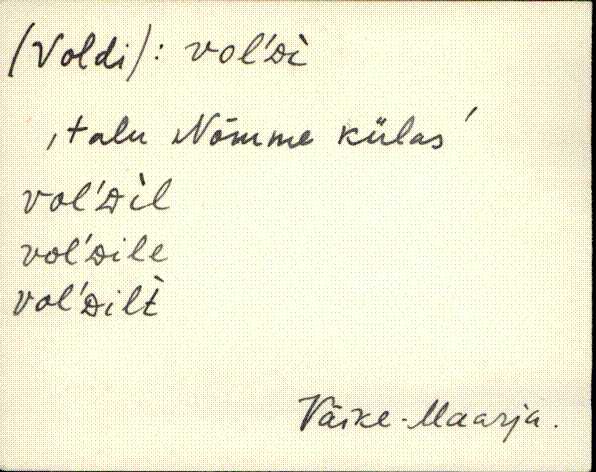 (Voldi): vol'ᴅì
‚talu Nõmme külas'
vol'ᴅìl
vol'ᴅile
vol'ᴅilt̀
Väike-Maarja.